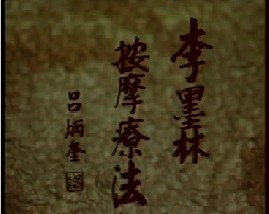 李墨林
按摩療法
呂炳奎